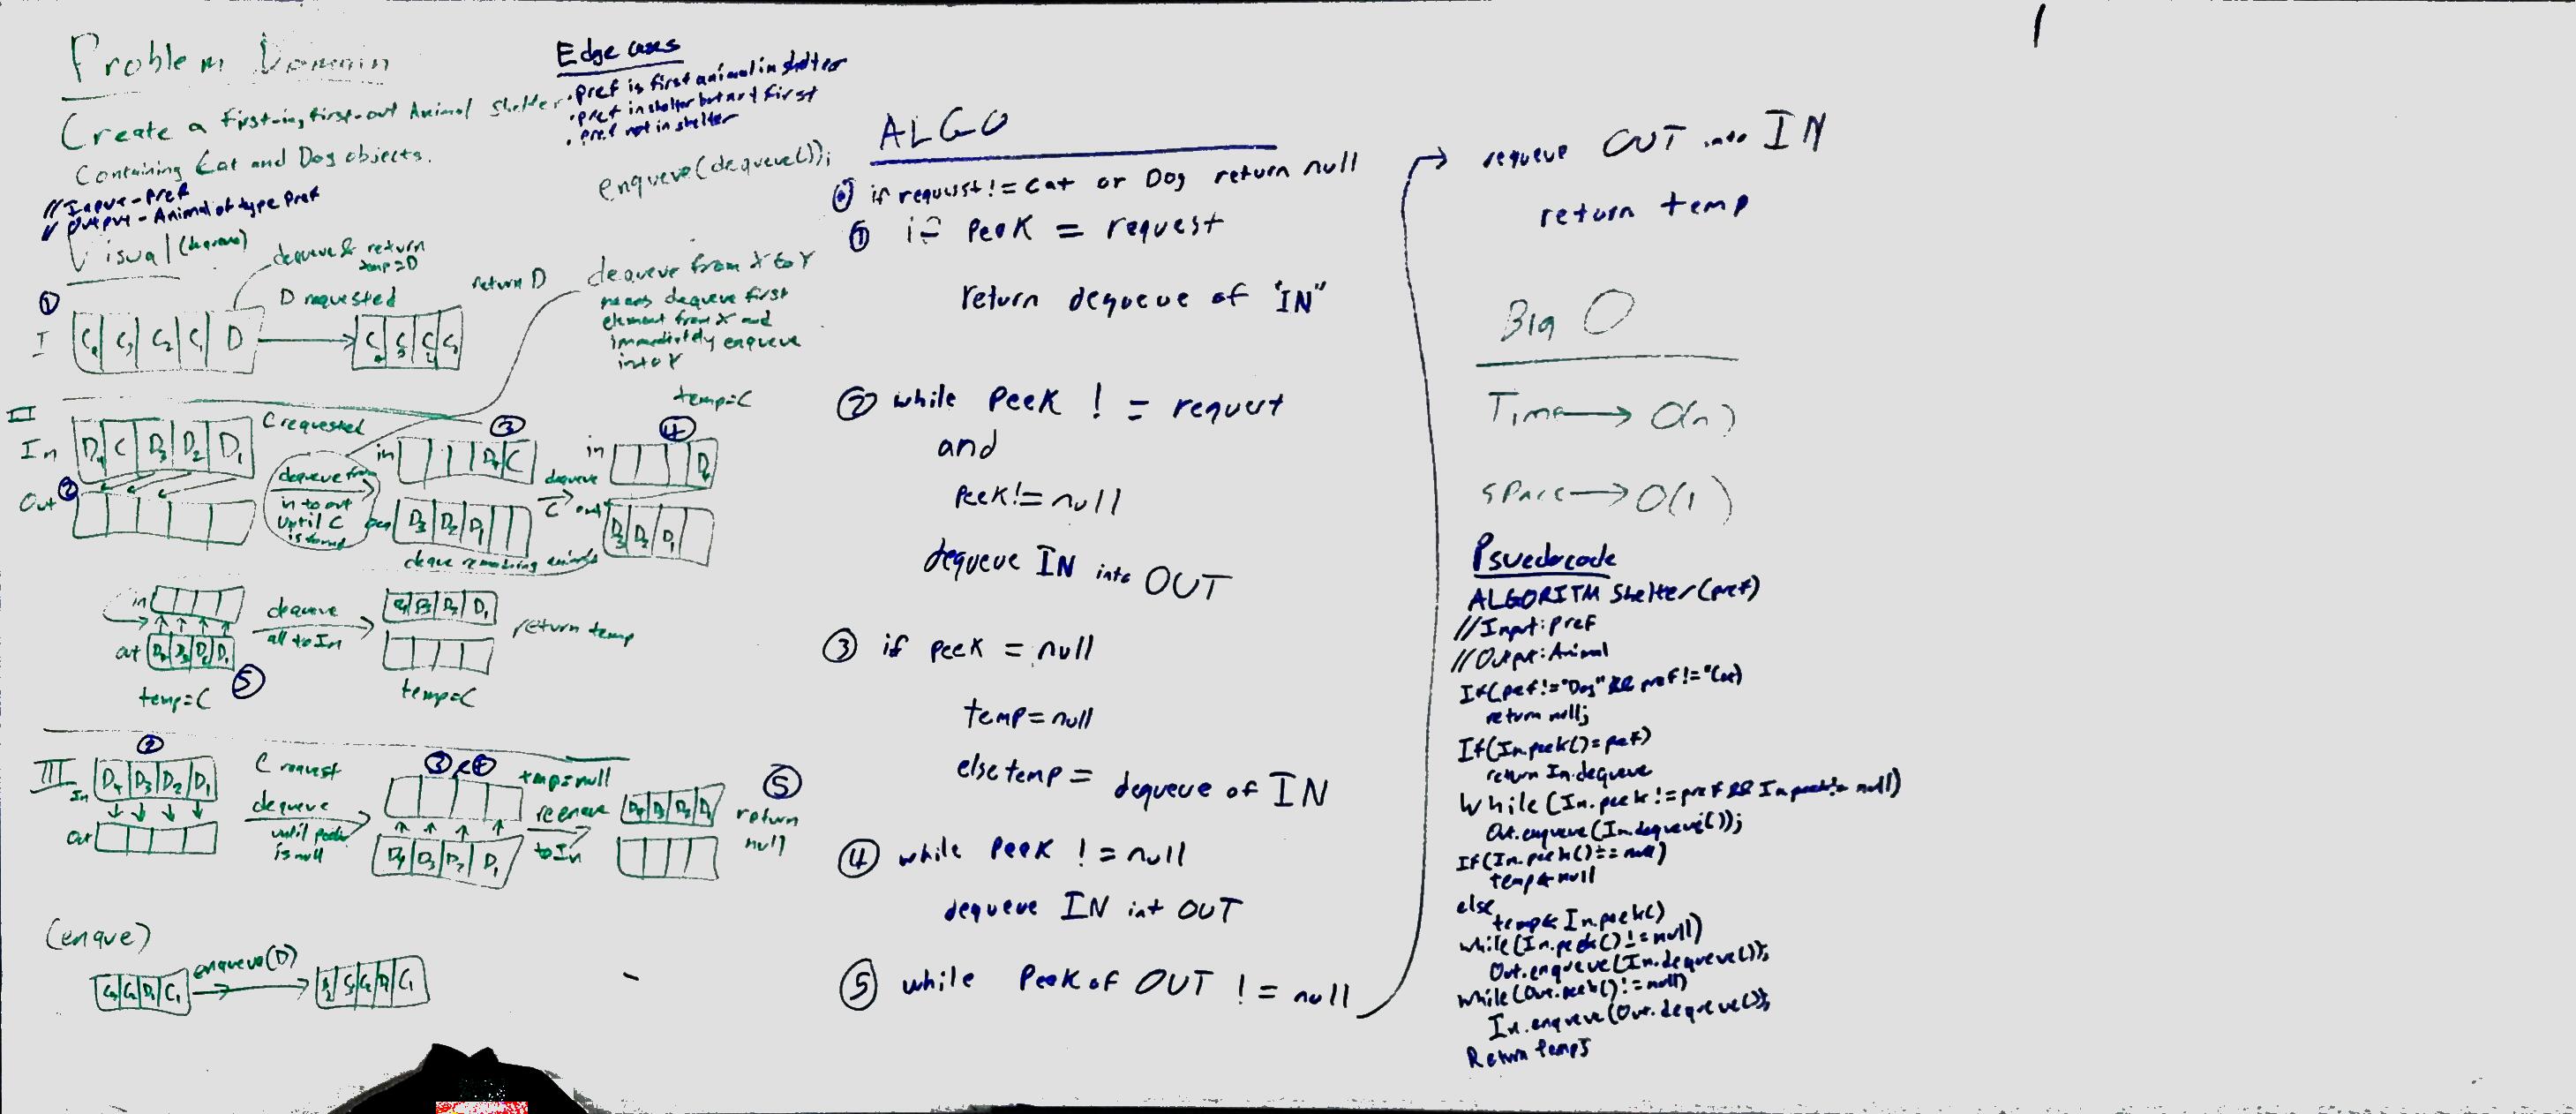 Problem Domain
Create a First-in, first-out Animal Shelter
Containing Cat and Dog objects.
// Input - Pref
// Output - Animal of type Pref
Edge cases
• pref is first animal in shelter
• pref in shelter but not first
• pref not in shelter
enqueue(dequeue());
Visual (dequeue)
dequeue & return
temp=D
① D requested
return D
I C4 C3 C2 C1 D
C4 C3 C2 C1
dequeue from X to Y
means dequeue first
element from X and
immediately enqueue
into Y
II
C requested
In D4 C D3 D2 D1
Out ②
dequeue from
in to out
until C
is found
③
in D4 C
D3 D2 D1
dequeue
C
temp=C
④
in D4
out D3 D2 D1
deque remaining animals
in
out D4 D3 D2 D1
temp=C ⑤
dequeue
all to In
D4 D3 D2 D1
return temp
temp=C
III
②
In D4 D3 D2 D1
Out
C request
dequeue
until peek
is null
③ & ④
temp=null
D4 D3 D2 D1
to In
D4 D3 D2 D1
⑤
return
null
(enque)
C3 C2 D1 C1
enqueue(D)
D2 C3 C2 D1 C1
ALGO
⓪ if request != Cat or Dog return null
① if Peek = request
return dequeue of "IN"
② while Peek != request
and
Peek != null
dequeue IN into OUT
③ if peek = null
temp = null
else temp = dequeue of IN
④ while Peek != null
dequeue IN int OUT
⑤ while Peek of OUT != null
requeue OUT into IN
return temp
Big O
Time → O(n)
Space → O(1)
Psuedocode
ALGORITM Shelter(pref)
// Input: pref
// Output: Animal
If(pref != "Dog" && pref != "Cat)
return null;
If(In.peek() = pref)
return In.dequeue
While (In.peek != pref && In.peek != null)
Out.enqueue(In.dequeue());
If(In.peek() == null)
temp ← null
else
temp ← In.peek()
while(In.peek() != null)
Out.enqueue(In.dequeue());
while(Out.peek() != null)
In.enqueue(Out.dequeue());
Return temp;